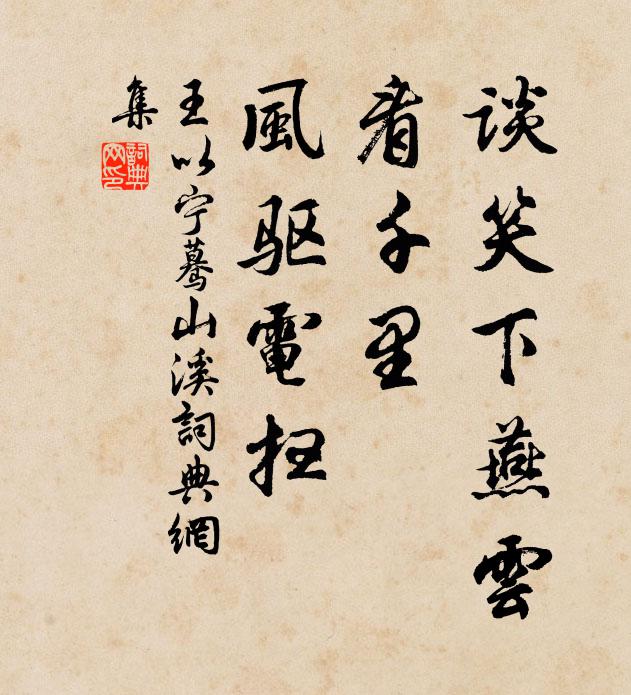 谈笑下燕雲
看千里
風驱電扫
王以宁蓦山溪詞典網
集
詞典
网印